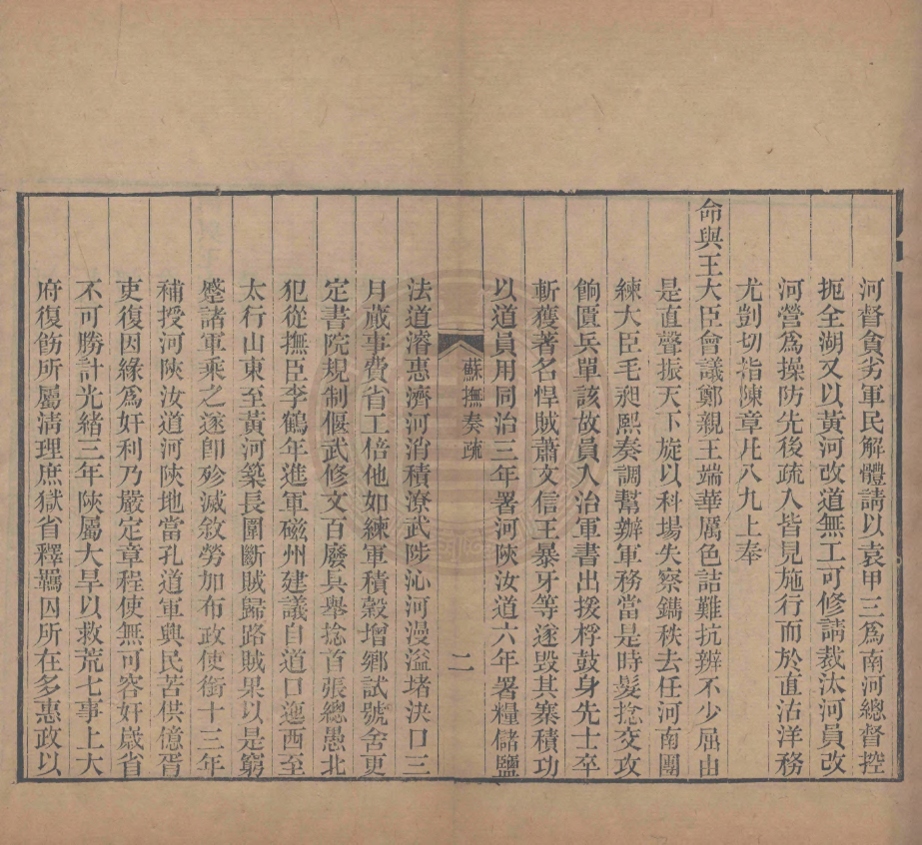 河督貪劣軍民解體請以袁甲三爲南河總督控
扼全湖又以黃河改道無工可修請裁汰河員改
河營爲操防先後疏入皆見施行而於直沽洋務
尤剴切指陳章凡八九上奉
命與王大臣會議鄭親王端華厲色詰難抗辨不少屈由
是直聲振天下旋以科場失察鐫秩去任河南團
練大臣毛昶熙奏調幫辦軍務當是時髮捻交攻
餉匱兵單該故員入治軍書出援桴鼓身先士卒
斬獲著名悍賊蕭文信王暴牙等遂毀其寨積功
以道員用同治三年署河陝汝道六年署糧儲鹽
蘇撫奏疏
二
法道濬惠濟河消積潦武陟沁河漫溢堵決口三
月蕆事費省工倍他如練軍積穀增鄉試號舍更
定書院規制偃武修文百廢具舉捻首張總愚北
犯從撫臣李鶴年進軍磁州建議自道口迤西至
太行山東至黃河築長圍斷賊歸路賊果以是窮
蹙諸軍乘之遂卽殄滅敘勞加布政使銜十三年
補授河陝汝道河陝地當孔道軍興民苦供億胥
吏復因緣爲奸利乃嚴定章程使無可容奸歲省
不可勝計光緒三年陝屬大旱以救荒七事上大
府復飭所屬淸理庶獄省釋羈囚所在多惠政以